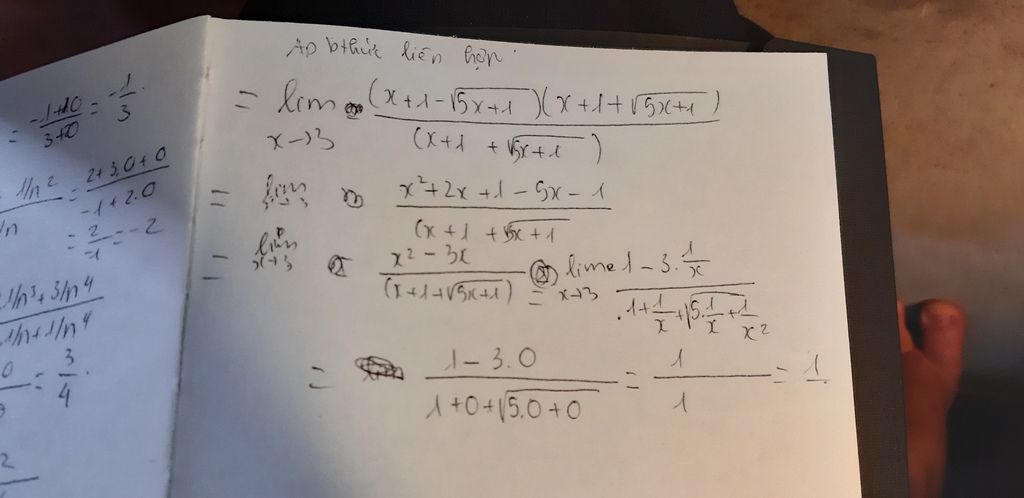 = -1+10/3+0 = -1/3.
1/n² / /n = 2+3.0+0 / -1+2.0
= 2/-1 = -2
1/n³+3/n⁴ / 1/n+1/n⁴
0 = 3/4.
2
Áp bthức liên hợp
= lim x→3 (x+1-√5x+1)(x+1+√5x+1) / (x+1+√5x+1)
= lim x→3 x²+2x+1-5x-1 / (x+1+√5x+1
= lim x→3 x²-3x / (x+1+√5x+1) = lim x→3 1-3.1/x / 1+1/x+√5.1/x+1/x²
= 1-3.0 / 1+0+√5.0+0 = 1/1 = 1.